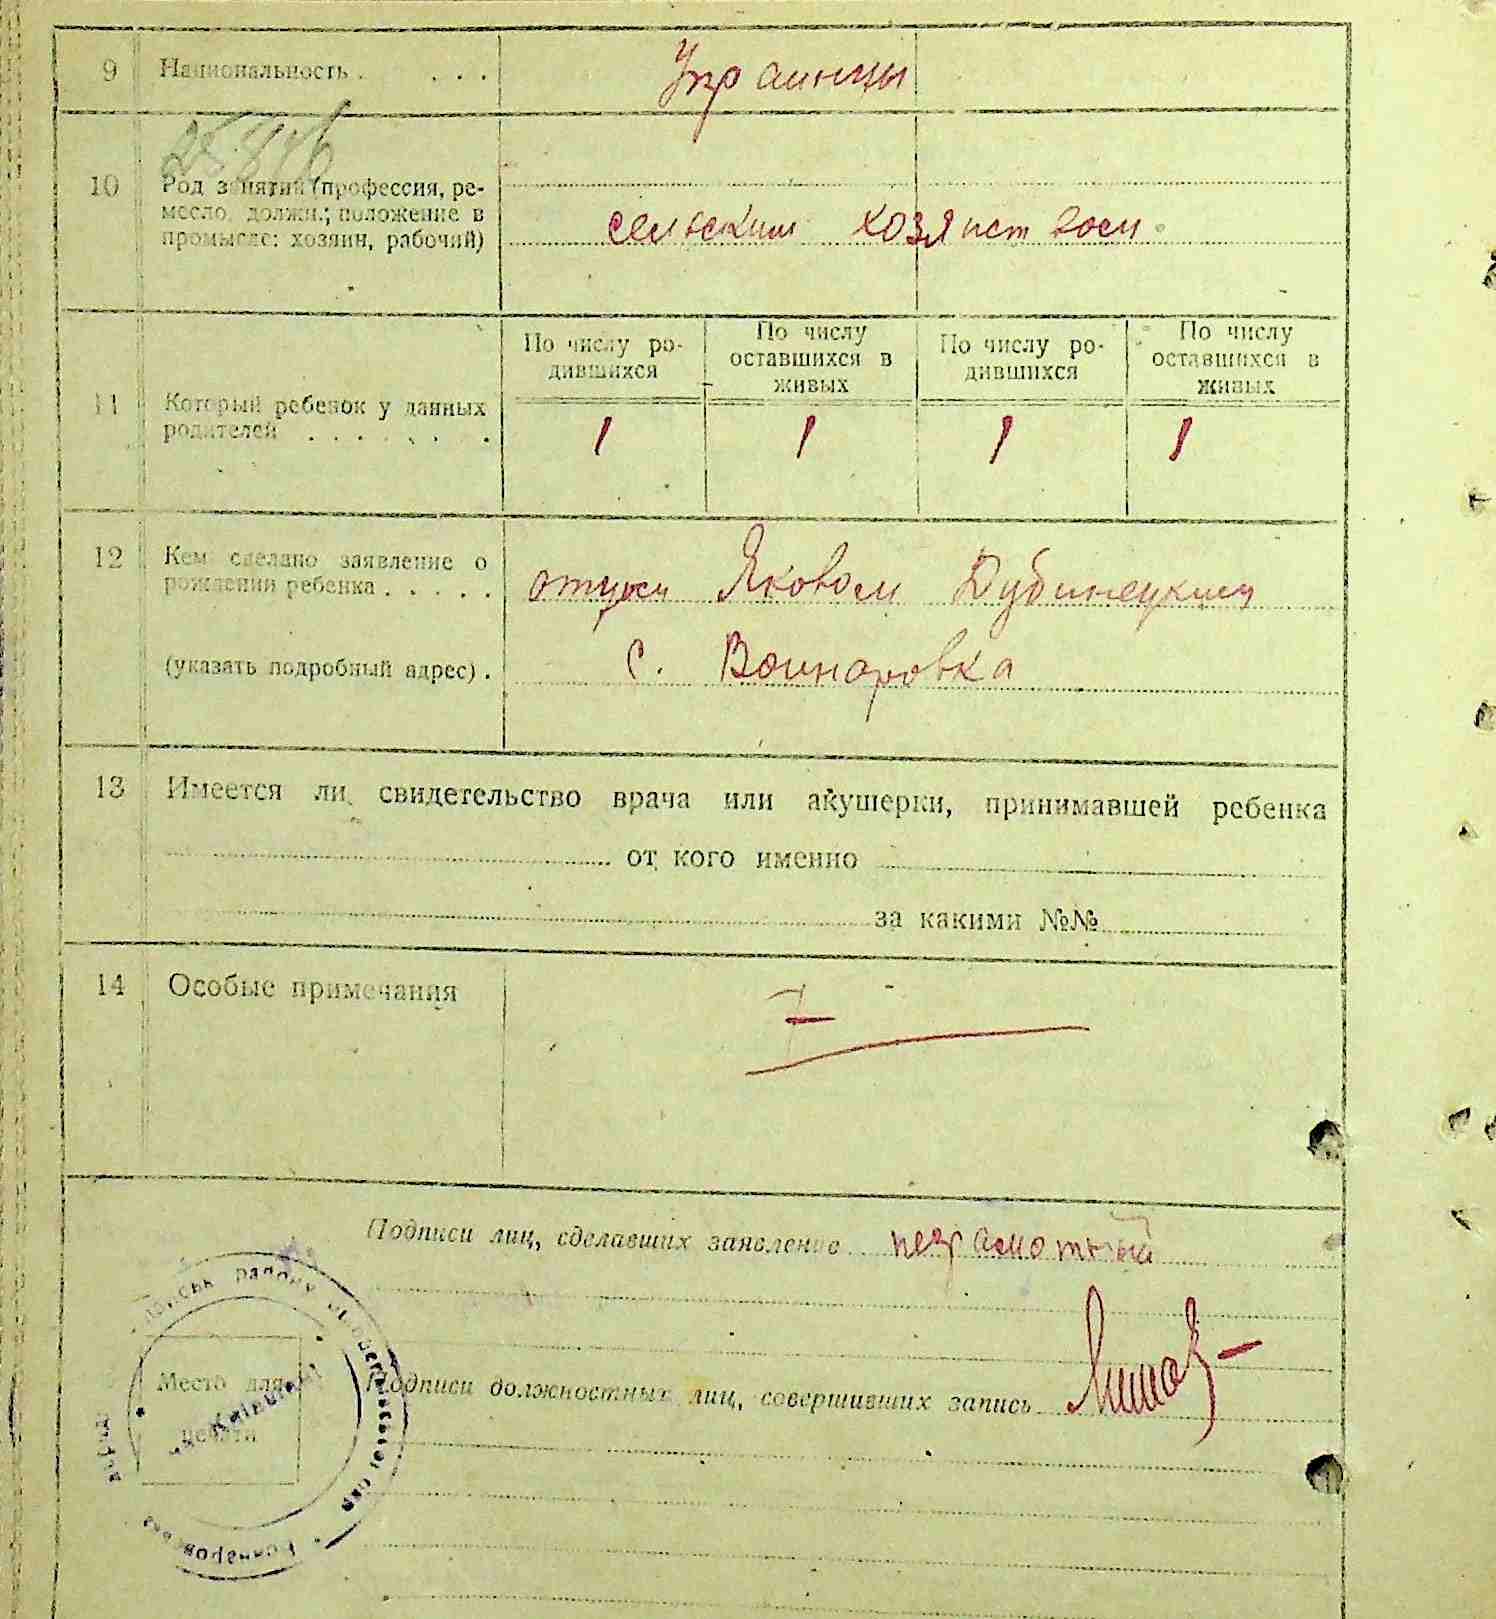 9 Национальность . . . . Украинцы
25.846
10 Род занятий (профессия, ре-
месло, должн.; положение в
промысле: хозяин, рабочий)
сельским хозяиством.
По числу ро-
дившихся
По числу
оставшихся в
живых
По числу ро-
дившихся
По числу
оставшихся в
живых
11 Который ребенок у данных
родителей . . . . . . .
1 1 1 1
12 Кем сделано заявление о
рождении ребенка . . . . .
отцом Яковом Дубинецким
(указать подробный адрес) . с. Воинаровка
13 Имеется ли свидетельство врача или акушерки, принимавшей ребенка
от кого именно
за какими №№
14 Особые примечания
Подписи лиц, сделавших заявление неграмотный
Место для
печати
Подписи должностных лиц, совершивших запись